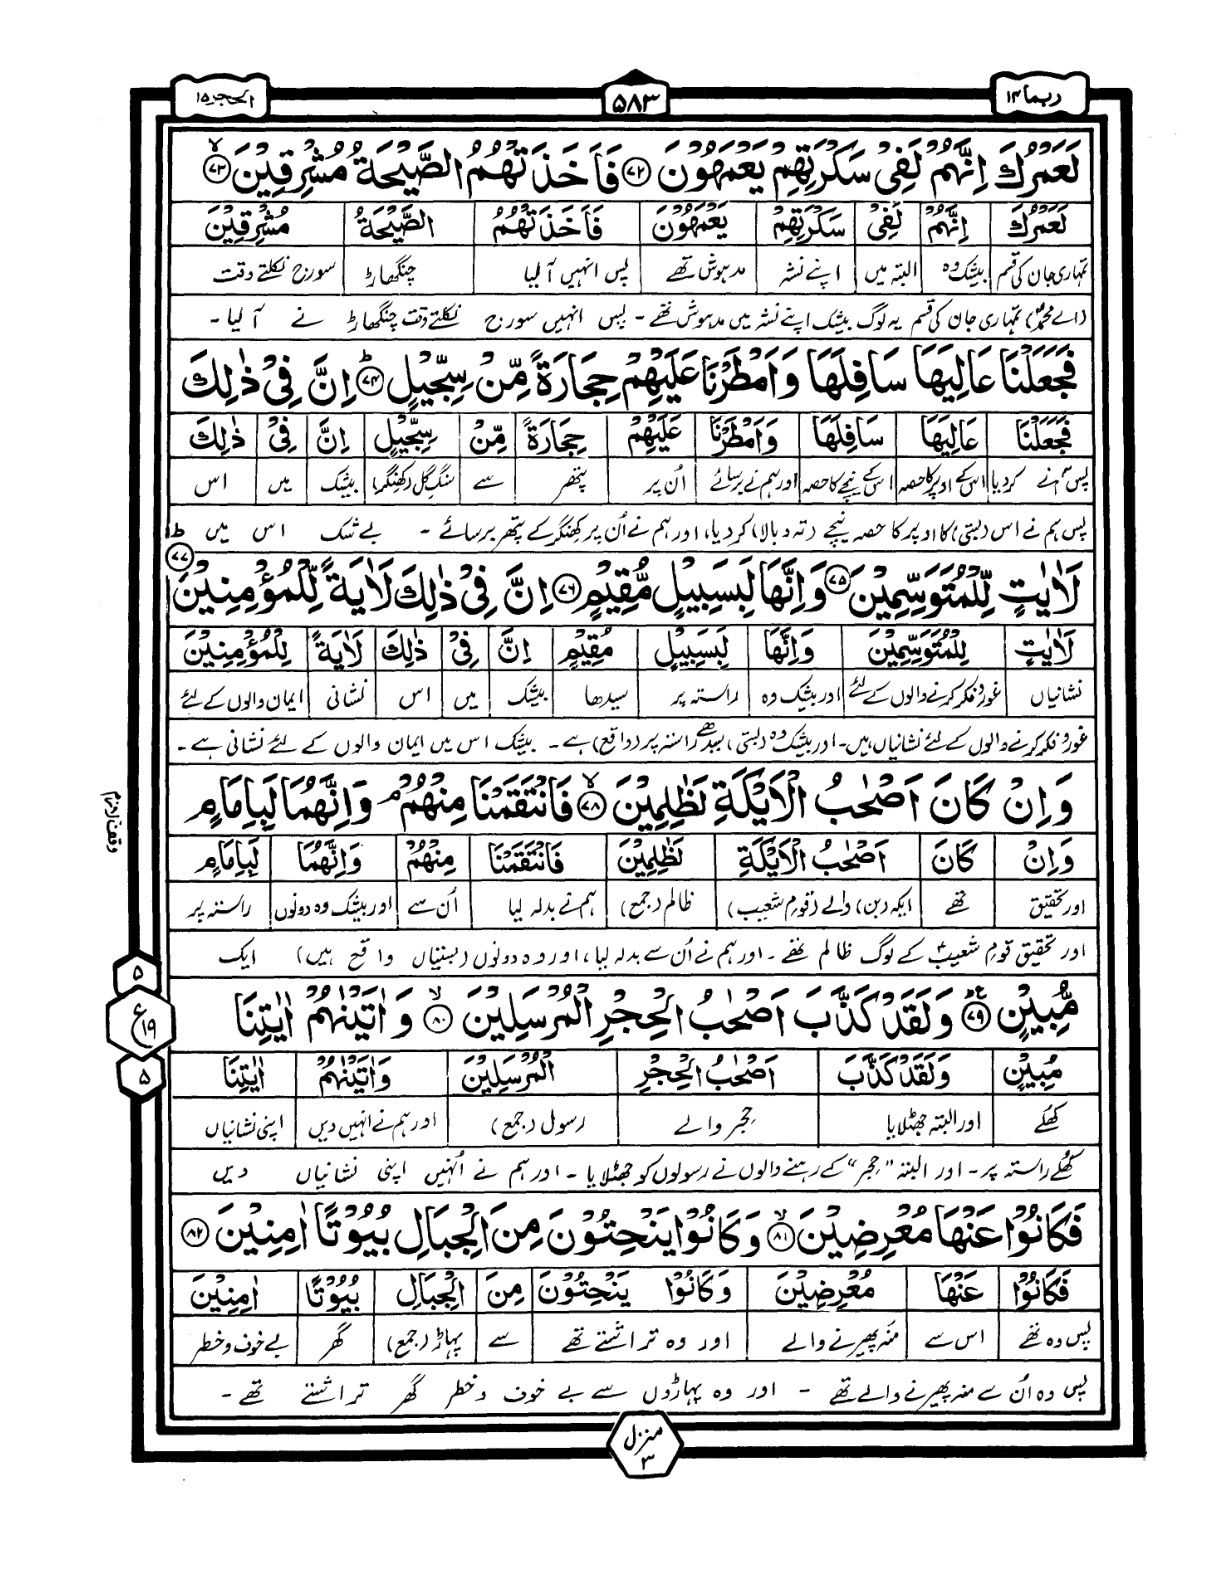 ربما ۱۴
۵۸۳
الحجر ۱۵
لَعَمْرُكَ اِنَّهُمْ لَفِیْ سَكْرَتِهِمْ یَعْمَهُوْنَ ۷۲ فَاَخَذَتْهُمُ الصَّیْحَةُ مُشْرِقِیْنَ ۷۳
لَعَمْرُكَ اِنَّهُمْ لَفِیْ سَكْرَتِهِمْ یَعْمَهُوْنَ فَاَخَذَتْهُمُ الصَّیْحَةُ مُشْرِقِیْنَ
تمہاری جان کی قسم بیشک وہ البتہ میں اپنے نشہ مدہوش تھے پس انہیں آ لیا چنگھاڑ سورج نکلتے وقت
(اے محمدؐ) تمہاری جان کی قسم یہ لوگ بیشک اپنے نشہ میں مدہوش تھے - پس انہیں سورج نکلتے وقت چنگھاڑ نے آ لیا -
فَجَعَلْنَا عَالِیَهَا سَافِلَهَا وَاَمْطَرْنَا عَلَیْهِمْ حِجَارَةً مِّنْ سِجِّیْلٍ ۷۴ اِنَّ فِیْ ذٰلِكَ
فَجَعَلْنَا عَالِیَهَا سَافِلَهَا وَاَمْطَرْنَا عَلَیْهِمْ حِجَارَةً مِّنْ سِجِّیْلٍ اِنَّ فِیْ ذٰلِكَ
پس ہم نے کر دیا اس کے اوپر کا حصہ اس کے نیچے کا حصہ اور ہم نے برسائے اُن پر پتھر سے سنگِ گل (کھنگر) بیشک میں اس
پس ہم نے اس (بستی) کا اوپر کا حصہ نیچے (تہ و بالا) کر دیا، اور ہم نے اُن پر کھنگر کے پتھر برسائے - بے شک اس میں
لَاٰیٰتٍ لِّلْمُتَوَسِّمِیْنَ ۷۵ وَاِنَّهَا لَبِسَبِیْلٍ مُّقِیْمٍ ۷۶ اِنَّ فِیْ ذٰلِكَ لَاٰیَةً لِّلْمُؤْمِنِیْنَ ۷۷
لَاٰیٰتٍ لِلْمُتَوَسِّمِیْنَ وَاِنَّهَا لَبِسَبِیْلٍ مُقِیْمٍ اِنَّ فِیْ ذٰلِكَ لَاٰیَةً لِلْمُؤْمِنِیْنَ
نشانیاں غور و فکر کرنے والوں کے لئے اور بیشک وہ راستہ پر سیدھا بیشک میں اس نشانی ایمان والوں کے لئے
غور و فکر کرنے والوں کے لئے نشانیاں ہیں - اور بیشک وہ (بستی) سیدھے راستہ پر (واقع) ہے - بیشک اس میں ایمان والوں کے لئے نشانی ہے -
وَاِنْ كَانَ اَصْحٰبُ الْاَیْكَةِ لَظٰلِمِیْنَ ۷۸ فَانْتَقَمْنَا مِنْهُمْ ۘ وَاِنَّهُمَا لَبِاِمَامٍ
وقف لازم
وَاِنْ كَانَ اَصْحٰبُ الْاَیْكَةِ لَظٰلِمِیْنَ فَانْتَقَمْنَا مِنْهُمْ وَاِنَّهُمَا لَبِاِمَامٍ
اور تحقیق تھے ایکہ (بن) والے (قوم شعیب) ظالم (جمع) ہم نے بدلہ لیا اُن سے اور بیشک وہ دونوں راستہ پر
اور تحقیق قوم شعیبؑ کے لوگ ظالم تھے - اور ہم نے اُن سے بدلہ لیا، اور وہ دونوں (بستیاں واقع ہیں) ایک
مُّبِیْنٍ ۷۹ وَلَقَدْ كَذَّبَ اَصْحٰبُ الْحِجْرِ الْمُرْسَلِیْنَ ۸۰ وَاٰتَیْنٰهُمْ اٰیٰتِنَا
۵ ع ۱۹ ۵
مُبِیْنٍ وَلَقَدْ كَذَّبَ اَصْحٰبُ الْحِجْرِ الْمُرْسَلِیْنَ وَاٰتَیْنٰهُمْ اٰیٰتِنَا
کھلے اور البتہ جھٹلایا حجر والے رسول (جمع) اور ہم نے انہیں دیں اپنی نشانیاں
کھُلے راستہ پر - اور البتہ "حجر" کے رہنے والوں نے رسولوں کو جھٹلایا - اور ہم نے اُنہیں اپنی نشانیاں دیں
فَكَانُوْا عَنْهَا مُعْرِضِیْنَ ۸۱ وَكَانُوْا یَنْحِتُوْنَ مِنَ الْجِبَالِ بُیُوْتًا اٰمِنِیْنَ ۸۲
فَكَانُوْا عَنْهَا مُعْرِضِیْنَ وَكَانُوْا یَنْحِتُوْنَ مِنَ الْجِبَالِ بُیُوْتًا اٰمِنِیْنَ
پس وہ تھے اس سے منہ پھیرنے والے اور وہ تراشتے تھے سے پہاڑ (جمع) گھر بے خوف و خطر
پس وہ اُن سے منہ پھیرنے والے تھے - اور وہ پہاڑوں سے بے خوف و خطر گھر تراشتے تھے -
منزل ۳